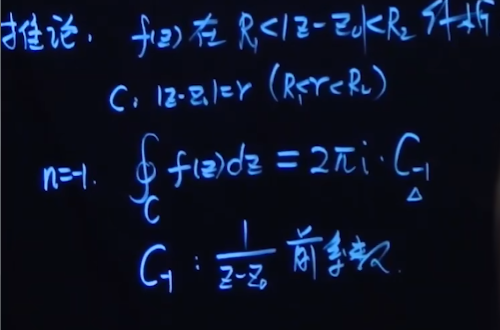 推论. f(z) 在 R₁<|z-z₀|<R₂ 解析
C. |z-z₀|=r (R₁<r<R₂)
n=-1. ∮_C f(z)dz = 2πi · C₋₁
C₋₁ : 1/(z-z₀) 前系数.